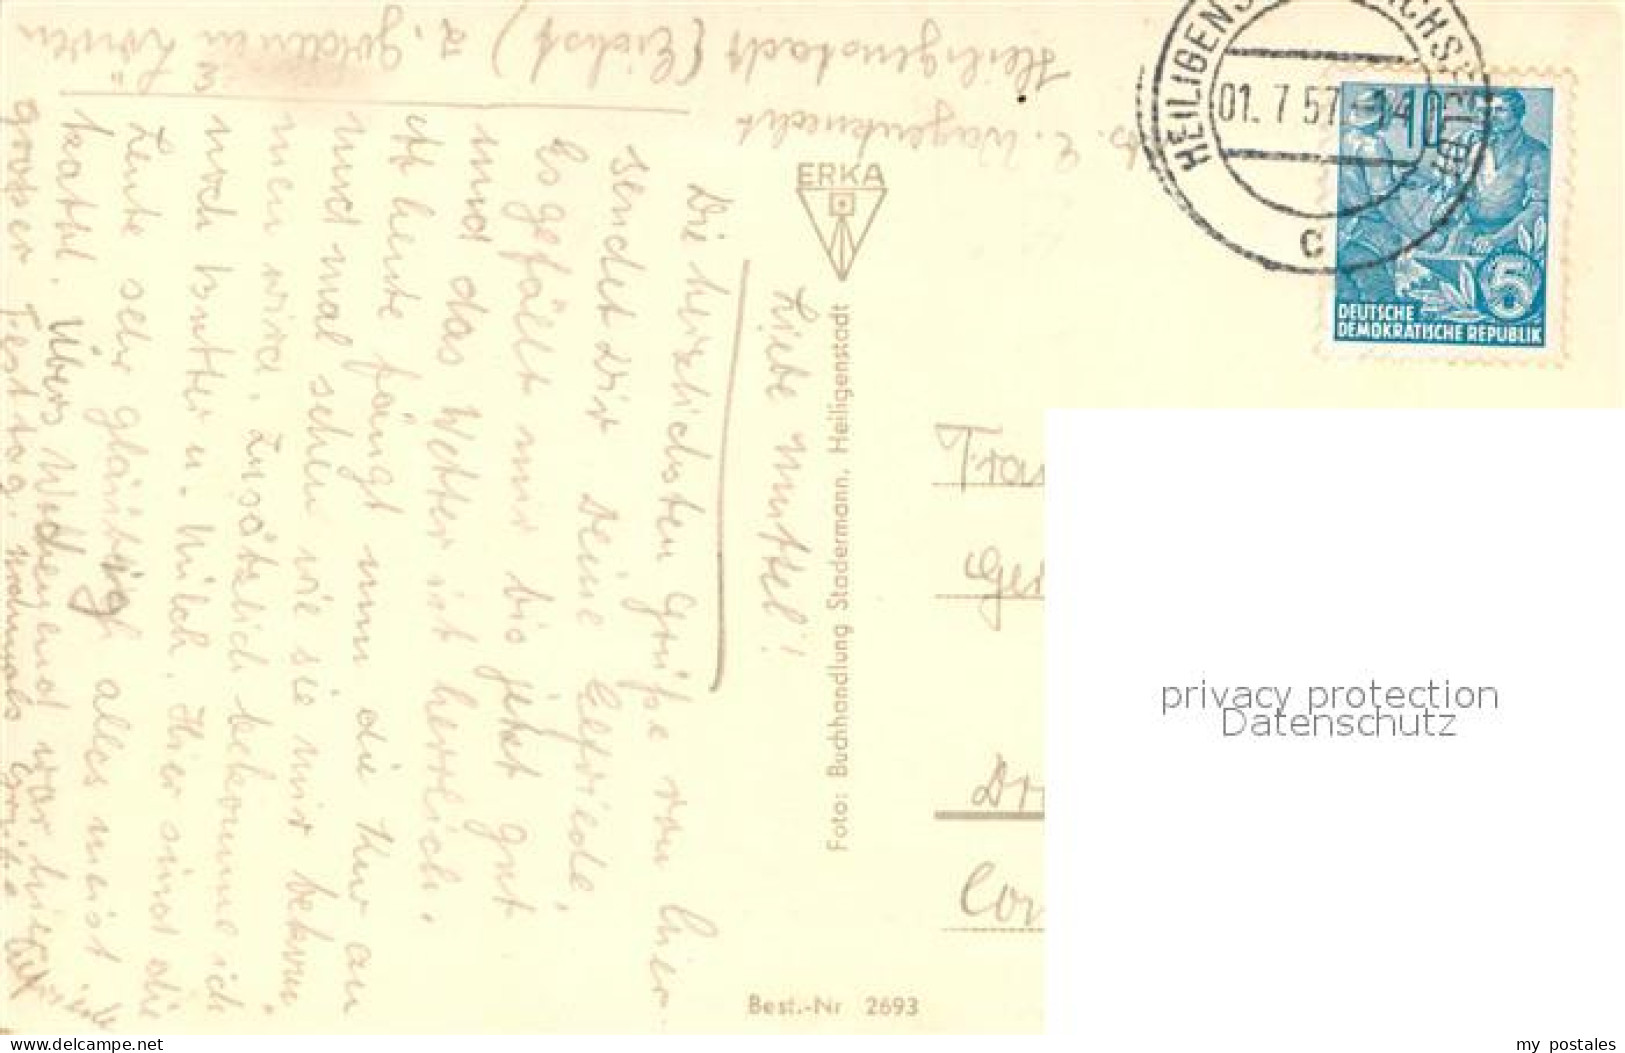 Heiligenstadt (Eichsf.) z. goldenen Löwen
E. Wagenknecht
HEILIGENS
01. 7 57-14
C
10
5
DEUTSCHE
DEMOKRATISCHE REPUBLIK
ERKA
Foto: Buchhandlung Stadermann, Heiligenstadt
Best.-Nr 2693
Liebe Mutter!
Die herzlichsten Grüße von hier
sendet Dir Deine Elfriede.
Es gefällt mir bis jetzt gut
und das Wetter ist herrlich.
heute fängt nun die Kur an
und mal sehen wie sie mir bekom
men wird. Zusätzlich bekomme ich
noch Butter u. Milch. Hier sind die
Leute sehr gläubig alles meist
kathl. Übers Wochenend war hier
grosser Festtag. nochmals Grüße
privacy protection
Datenschutz
www.delcampe.net
my_postales